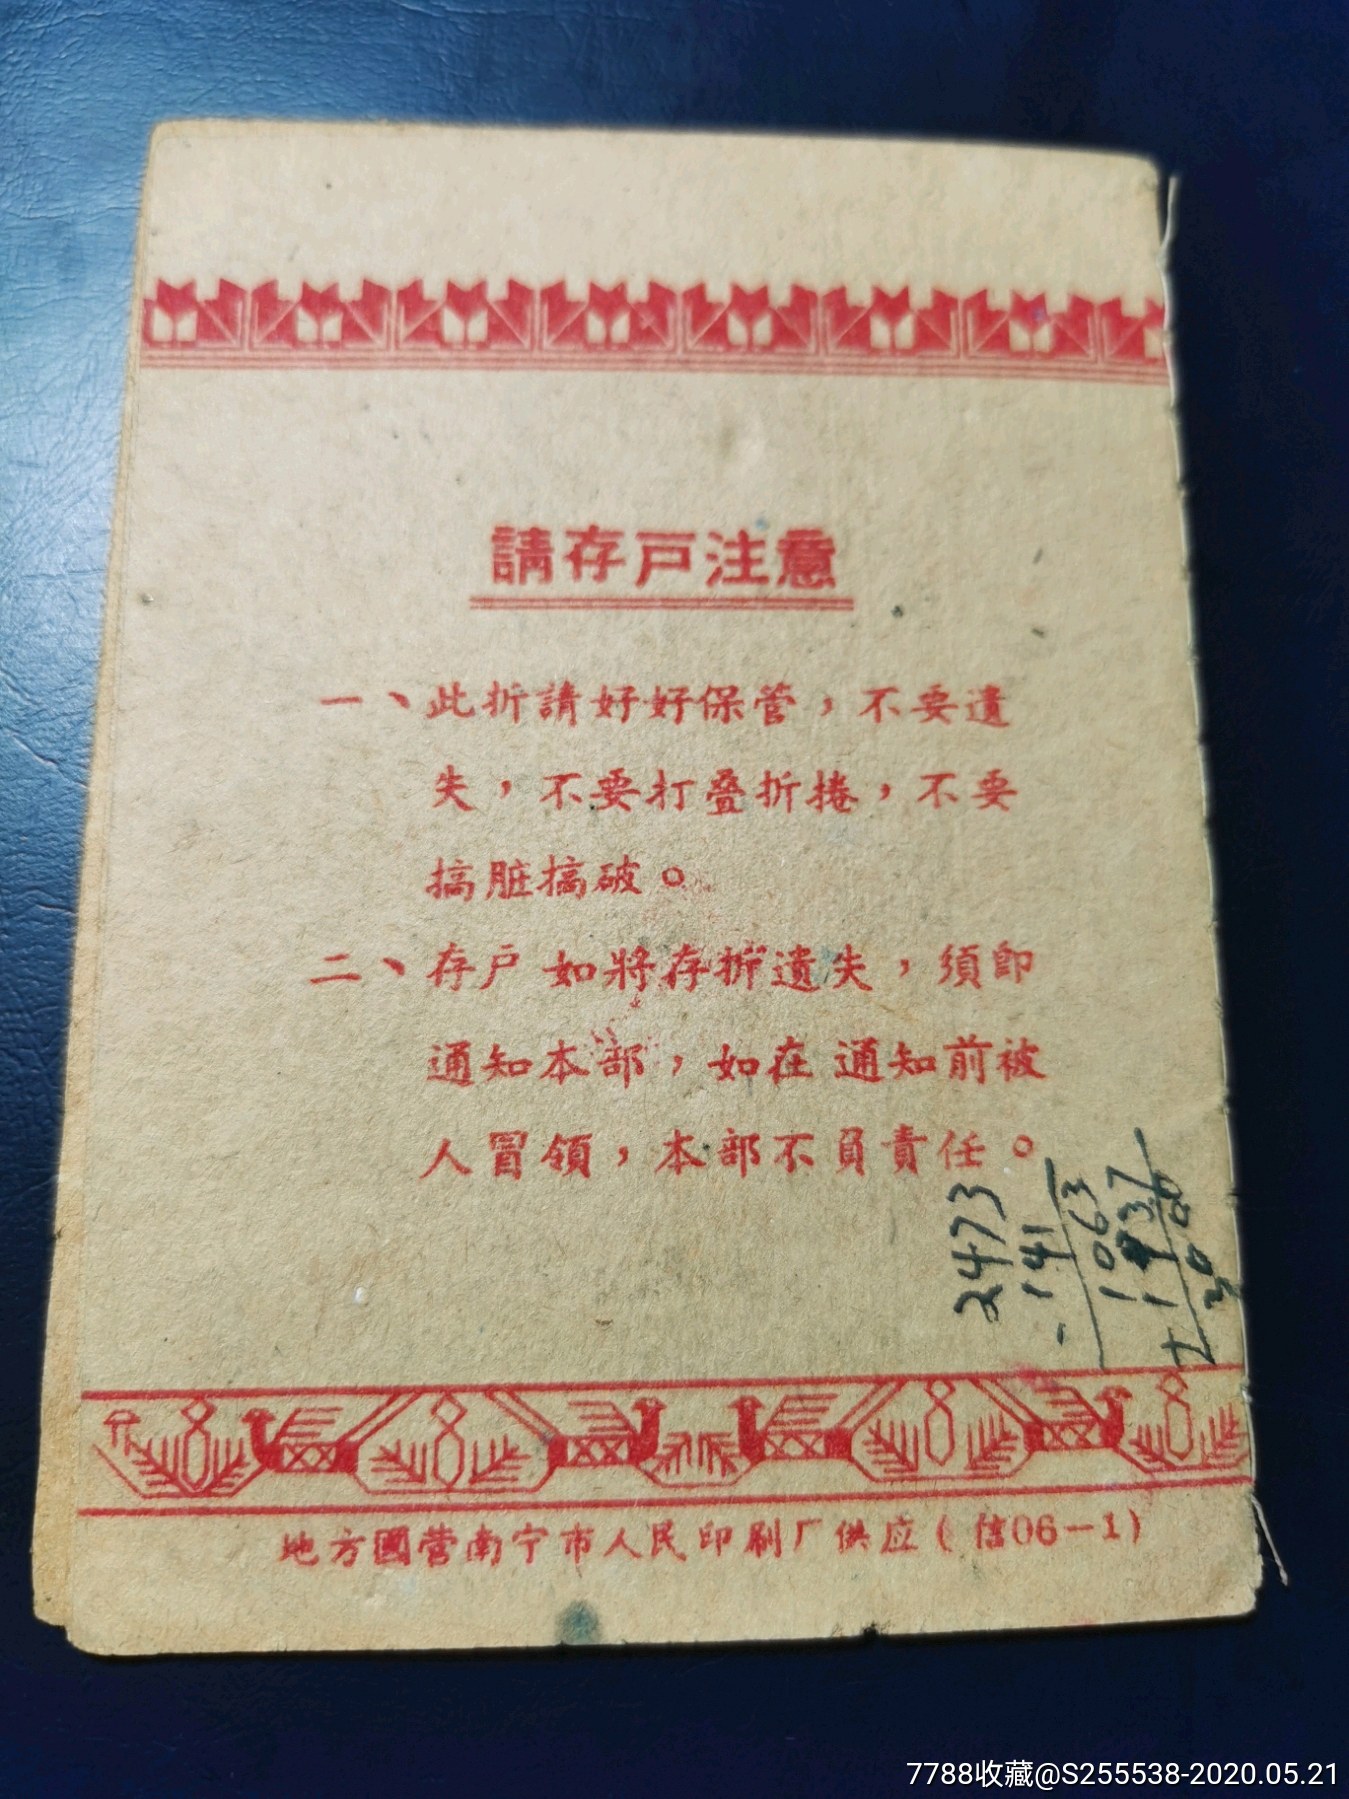 請存戸注意
一、此折請好好保管，不要遺
失，不要打叠折捲，不要
搞脏搞破。
二、存戶如將存折遺失，須即
通知本部，如在通知前被
人冒領，本部不負責任。
2473
- 141
1063
+ 1937
3000
地方國营南宁市人民印刷厂供应(信06-1)
7788收藏@S255538-2020.05.21